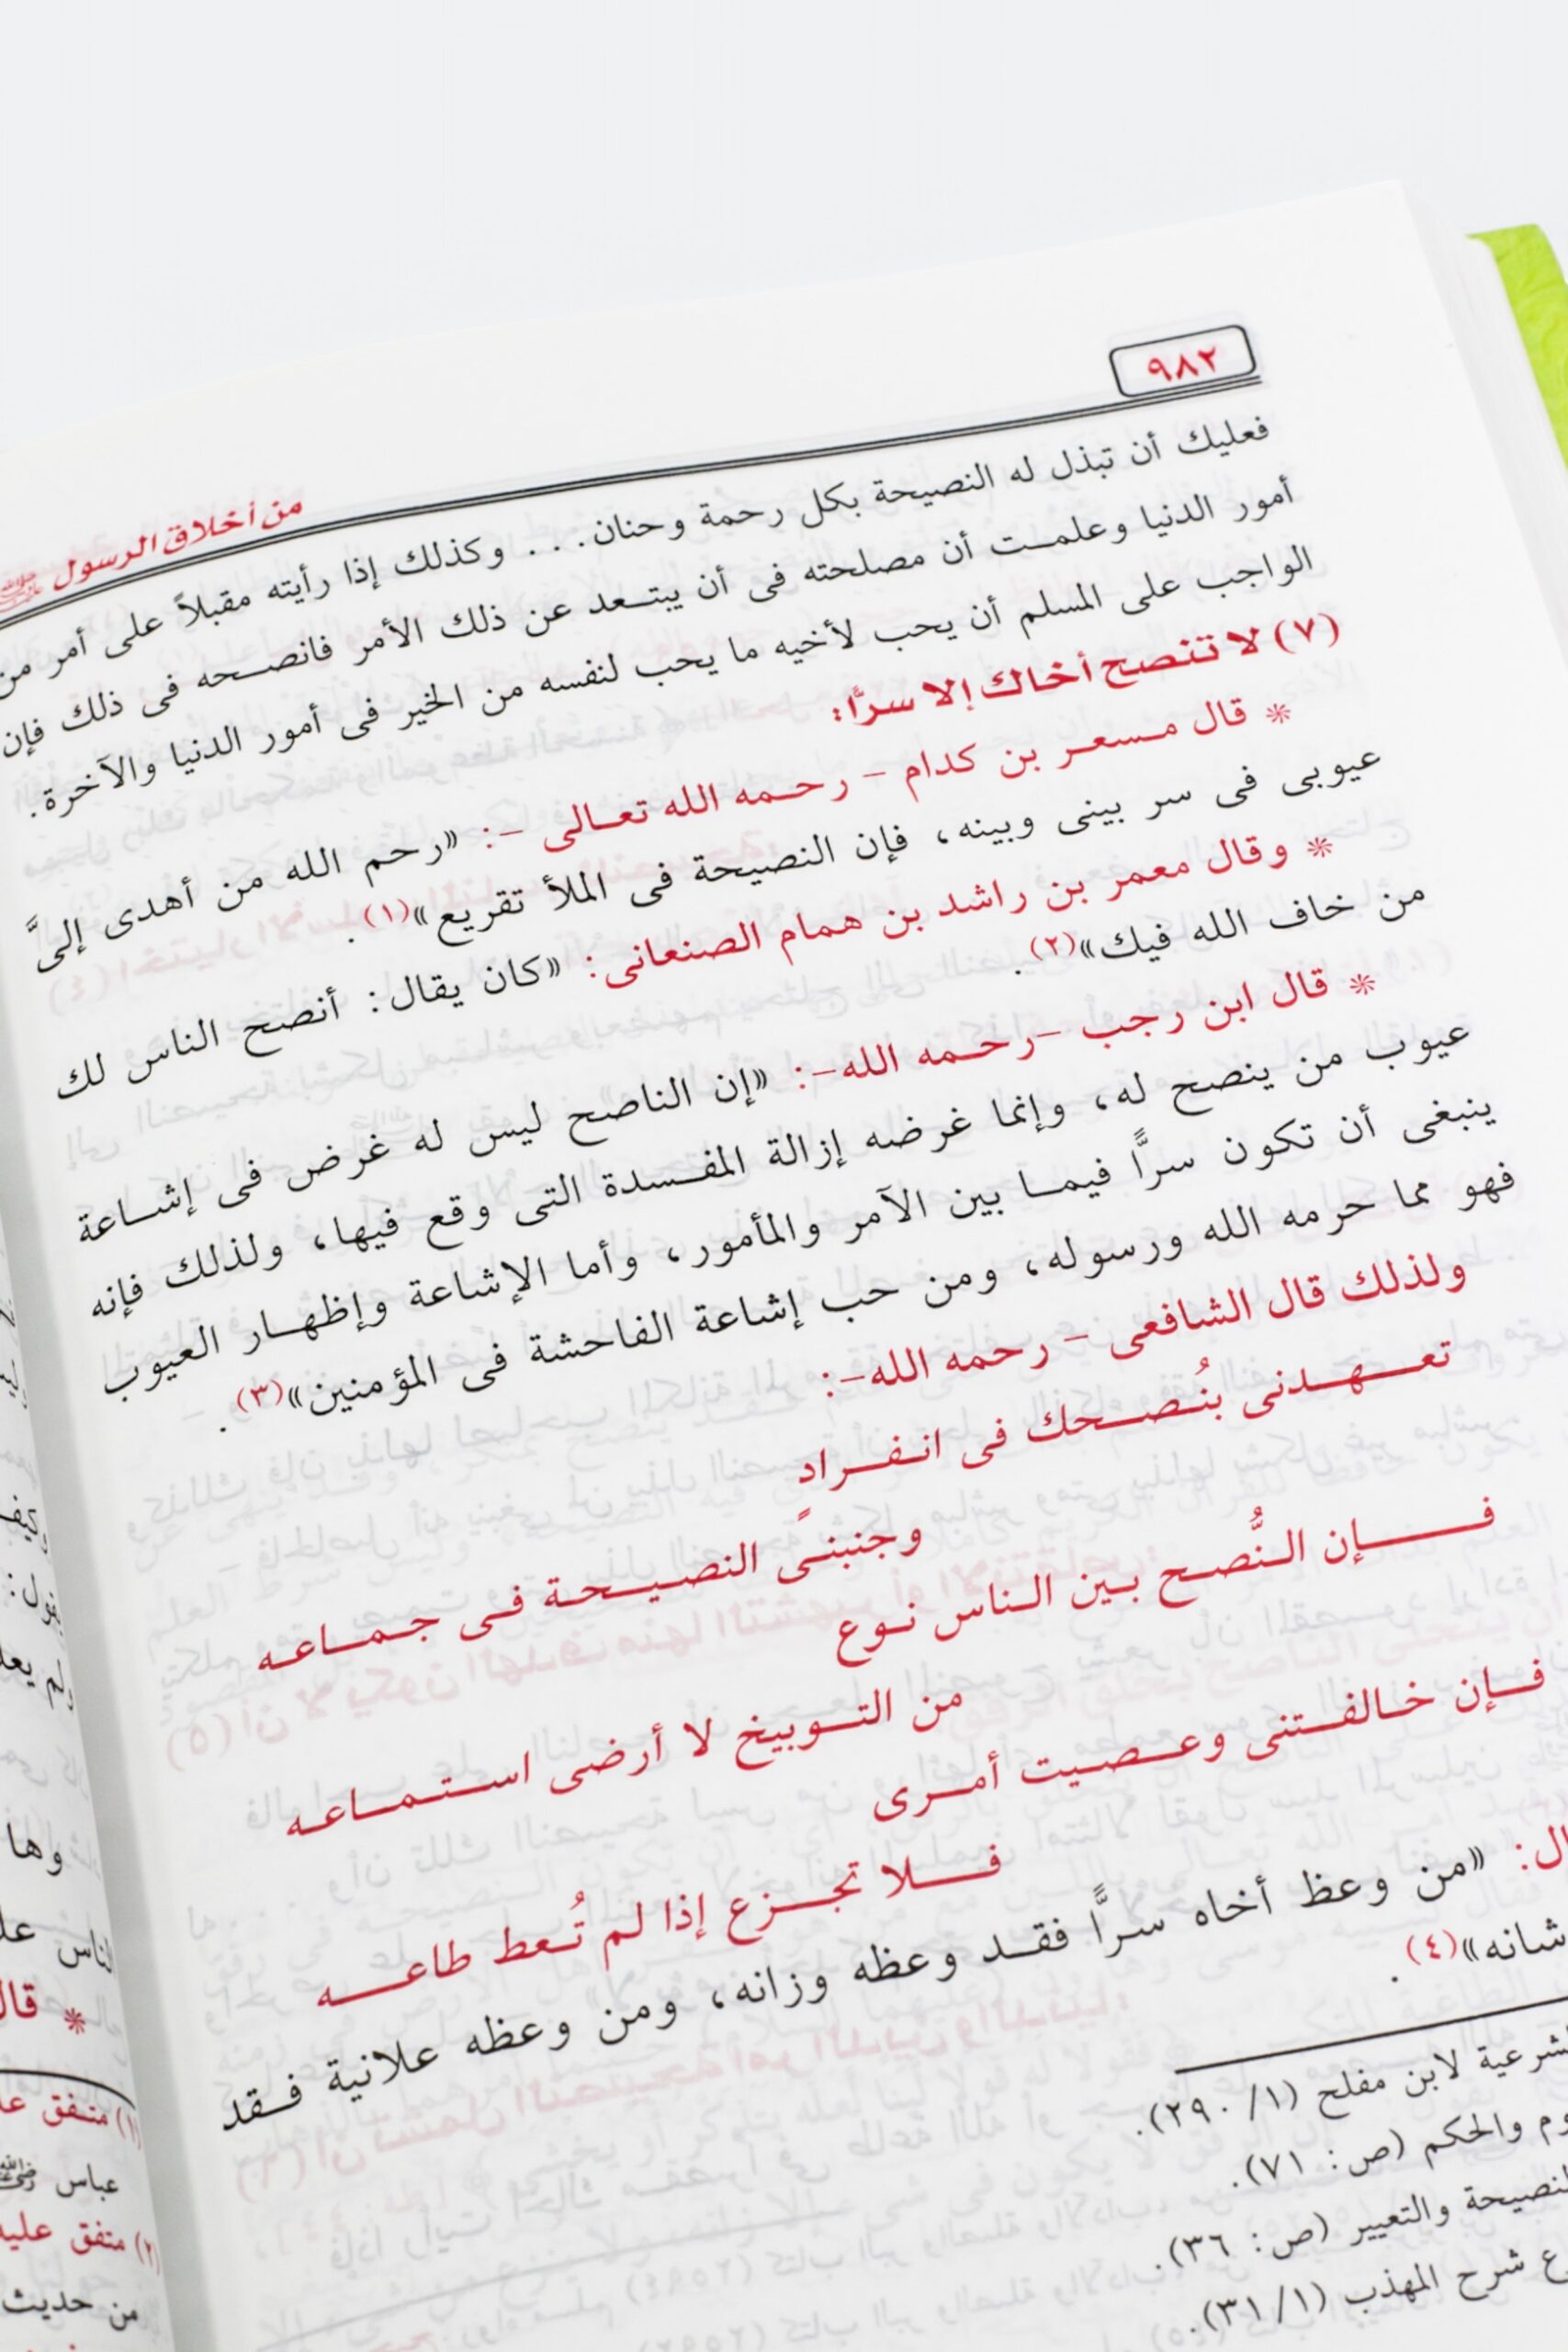 ٩٨٢
من أخلاق الرسول ﷺ
فعليك أن تبذل له النصيحة بكل رحمة وحنان. . . وكذلك إذا رأيته مقبلاً على أمر من
أمور الدنيا وعلمت أن مصلحته فى أن يبتعد عن ذلك الأمر فانصحه فى ذلك فإن
الواجب على المسلم أن يحب لأخيه ما يحب لنفسه من الخير فى أمور الدنيا والآخرة.
(٧) لا تنصح أخاك إلا سرًّا:
* قال مسعر بن كدام - رحمه الله تعالى -: «رحم الله من أهدى إلىَّ
عيوبى فى سر بينى وبينه، فإن النصيحة فى الملأ تقريع»(١).
* وقال معمر بن راشد بن همام الصنعانى: «كان يقال: أنصح الناس لك
من خاف الله فيك»(٢).
* قال ابن رجب -رحمه الله-: «إن الناصح ليس له غرض فى إشاعة
عيوب من ينصح له، وإنما غرضه إزالة المفسدة التى وقع فيها، ولذلك فإنه
ينبغى أن تكون سرًّا فيما بين الآمر والمأمور، وأما الإشاعة وإظهار العيوب
فهو مما حرمه الله ورسوله، ومن حب إشاعة الفاحشة فى المؤمنين»(٣).
ولذلك قال الشافعى - رحمه الله-:
تعهدنى بنُصحك فى انفرادٍ
وجنبنى النصيحة فى جماعه
فإن النُّصح بين الناس نوع
من التوبيخ لا أرضى استماعه
فإن خالفتنى وعصيت أمرى
فلا تجزع إذا لم تُعط طاعه
ال: «من وعظ أخاه سرًّا فقد وعظه وزانه، ومن وعظه علانية فقد
شانه»(٤).
لشرعية لابن مفلح (١/ ٢٩٠).
وم والحكم (ص: ٧١).
لنصيحة والتعيير (ص: ٣٦).
ع شرح المهذب (١/ ٣١).
يقول:
لم يعل
وها
لناس عل
* قال
(١) متفق عل
عباس رضي الله
(٢) متفق عليه
من حديث